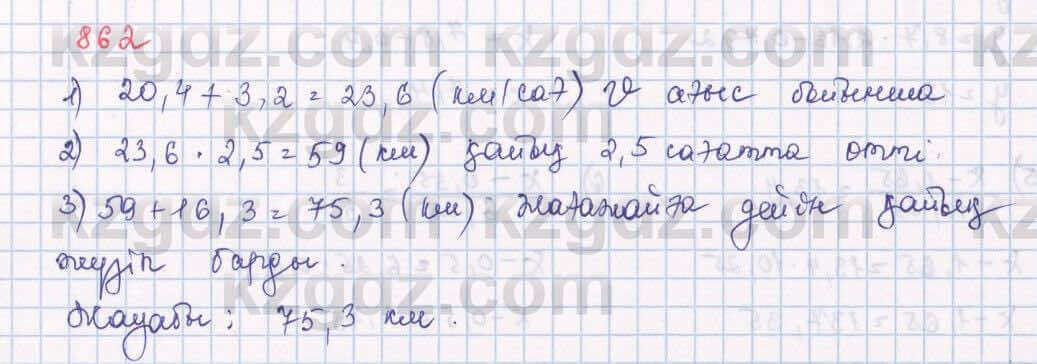 862
1) 20,4 + 3,2 = 23,6 (км/сағ) V ағыс бойынша
2) 23,6 · 2,5 = 59 (км) қайық 2,5 сағатта өтті.
3) 59 + 16,3 = 75,3 (км) жағажайға дейін қайық
жүзіп барды.
Жауабы: 75,3 км.
kzgdz.com
kzgdz.com
kzgdz.com